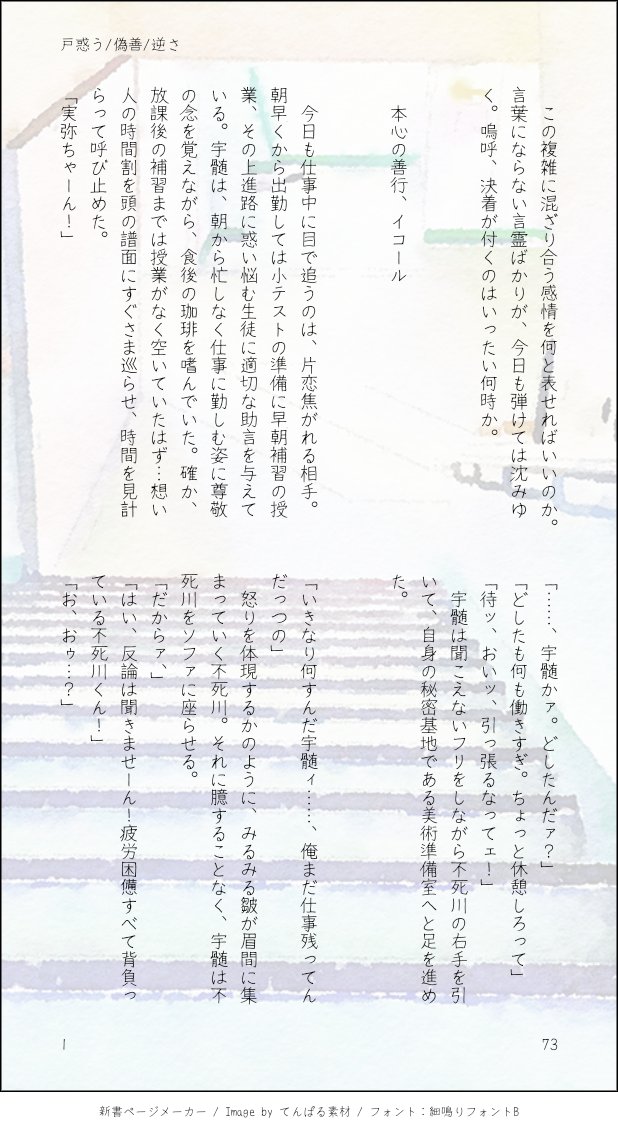 戸惑う/偽善/逆さ
この複雑に混ざり合う感情を何と表せればいいのか。
言葉にならない言霊ばかりが、今日も弾けては沈みゆ
く。嗚呼、決着が付くのはいったい何時か。
本心の善行、イコール
今日も仕事中に目で追うのは、片恋焦がれる相手。
朝早くから出勤しては小テストの準備に早朝補習の授
業、その上進路に惑い悩む生徒に適切な助言を与えて
いる。宇髄は、朝から忙しなく仕事に勤しむ姿に尊敬
の念を覚えながら、食後の珈琲を嗜んでいた。確か、
放課後の補習までは授業がなく空いていたはず…想い
人の時間割を頭の譜面にすぐさま巡らせ、時間を見計
らって呼び止めた。
「実弥ちゃーん！」
「……、宇髄かァ。どしたんだァ？」
「どしたも何も働きすぎ。ちょっと休憩しろって」
「待ッ、おいッ、引っ張るなってェ！」
宇髄は聞こえないフリをしながら不死川の右手を引
いて、自身の秘密基地である美術準備室へと足を進め
た。
「いきなり何すんだ宇髄ィ……、俺まだ仕事残ってん
だっつの」
怒りを体現するかのように、みるみる皺が眉間に集
まっていく不死川。それに臆することなく、宇髄は不
死川をソファに座らせる。
「だからァ、」
「はい、反論は聞きませーん！疲労困憊すべて背負っ
ている不死川くん！」
「お、おゥ…？」
1
73
新書ページメーカー / Image by てんぱる素材 / フォント：細鳴りフォントB